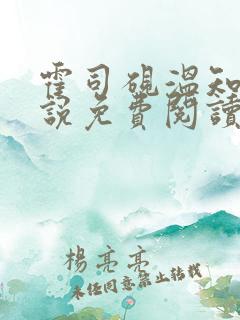 霍司硯溫知
說免費閱讀
楊亮亮
未經同意禁止轉載